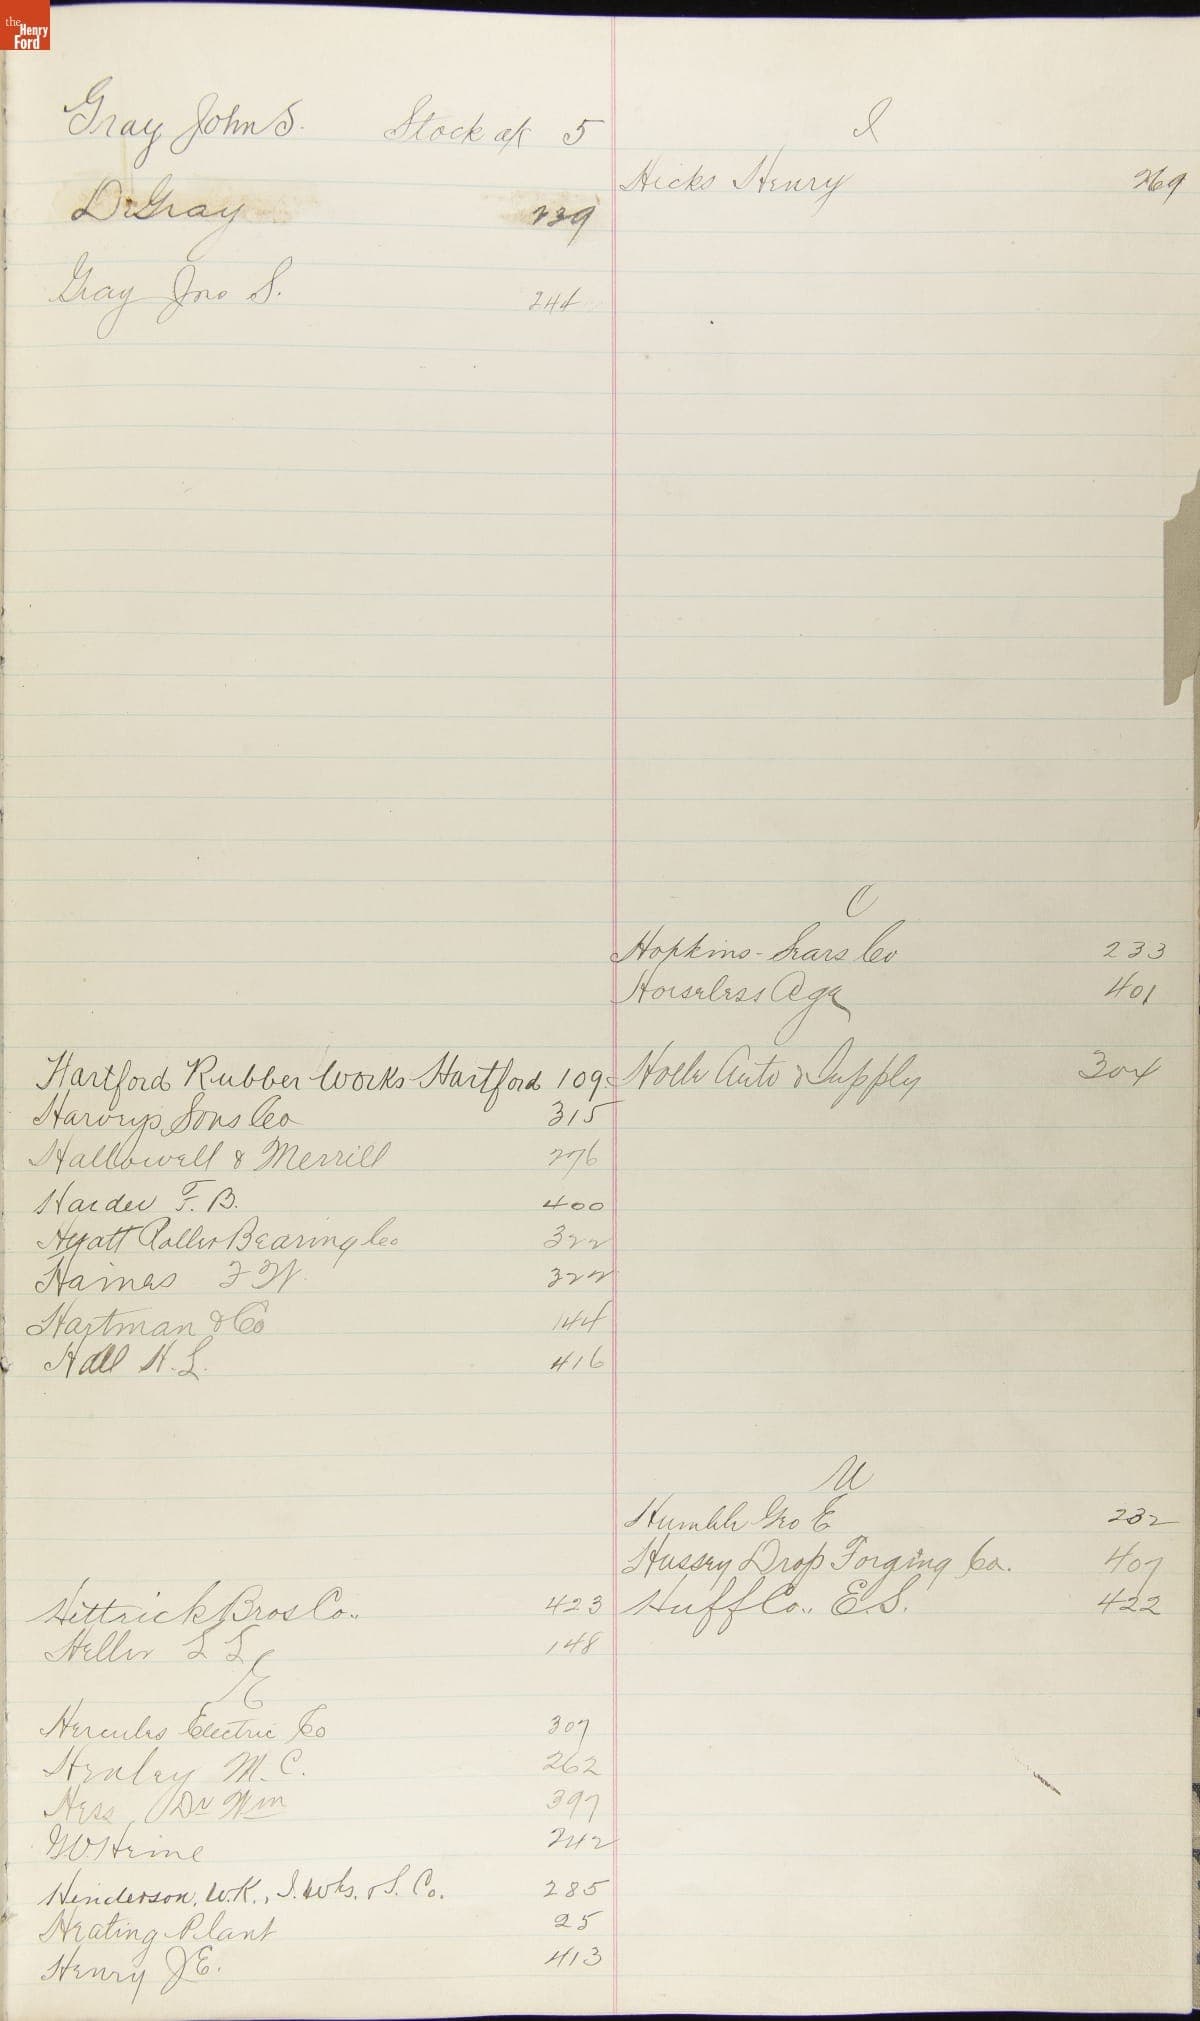 the Henry Ford
Gray John S. Stock a/c 5
Dr Gray 239
Gray Jno S. 244
Hartford Rubber Works Hartford 109
Harvey's Sons Co 315
Hallowell & Merrill 276
Harder F. B. 400
Hyatt Roller Bearing Co 322
Haines F W. 322
Hartman & Co 144
Hall H. L. 416
Hettrick Bros Co.. 423
Heller L L 148
E
Hercules Electric Co 307
Henley M. C. 262
Hess Dr Wm 397
G W. Heine 242
Henderson, W. K., I. Wks. & S. Co. 285
Heating Plant 25
Henry J E. 413
I
Hicks Henry 269
O
Hopkins-Sears Co 233
Horseless Age 401
Auto & Supply 304
U
Humble Geo E 232
Hussey Drop Forging Co. 407
Huff Co., E. S. 422